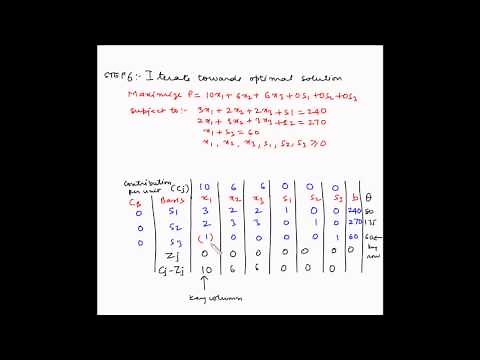 STEP 6:- Iterate towards optimal solution
Maximize P = 10x1 + 6x2 + 6x3 + 0s1 + 0s2 + 0s3
Subject to:- 3x1 + 2x2 + 2x3 + s1 = 240
2x1 + 3x2 + 3x3 + s2 = 270
x1 + s3 = 60
x1, x2, x3, s1, s2, s3 ≥ 0
Contribution per unit (Cj) 10 6 6 0 0 0
CB Basis x1 x2 x3 s1 s2 s3 b θ
0 s1 3 2 2 1 0 0 240 80
0 s2 2 3 3 0 1 0 270 135
0 s3 (1) 0 0 0 0 1 60 60← key row
Zj 0 0 0 0 0 0 0
Cj-Zj 10 6 6 0 0 0
↑
Key column